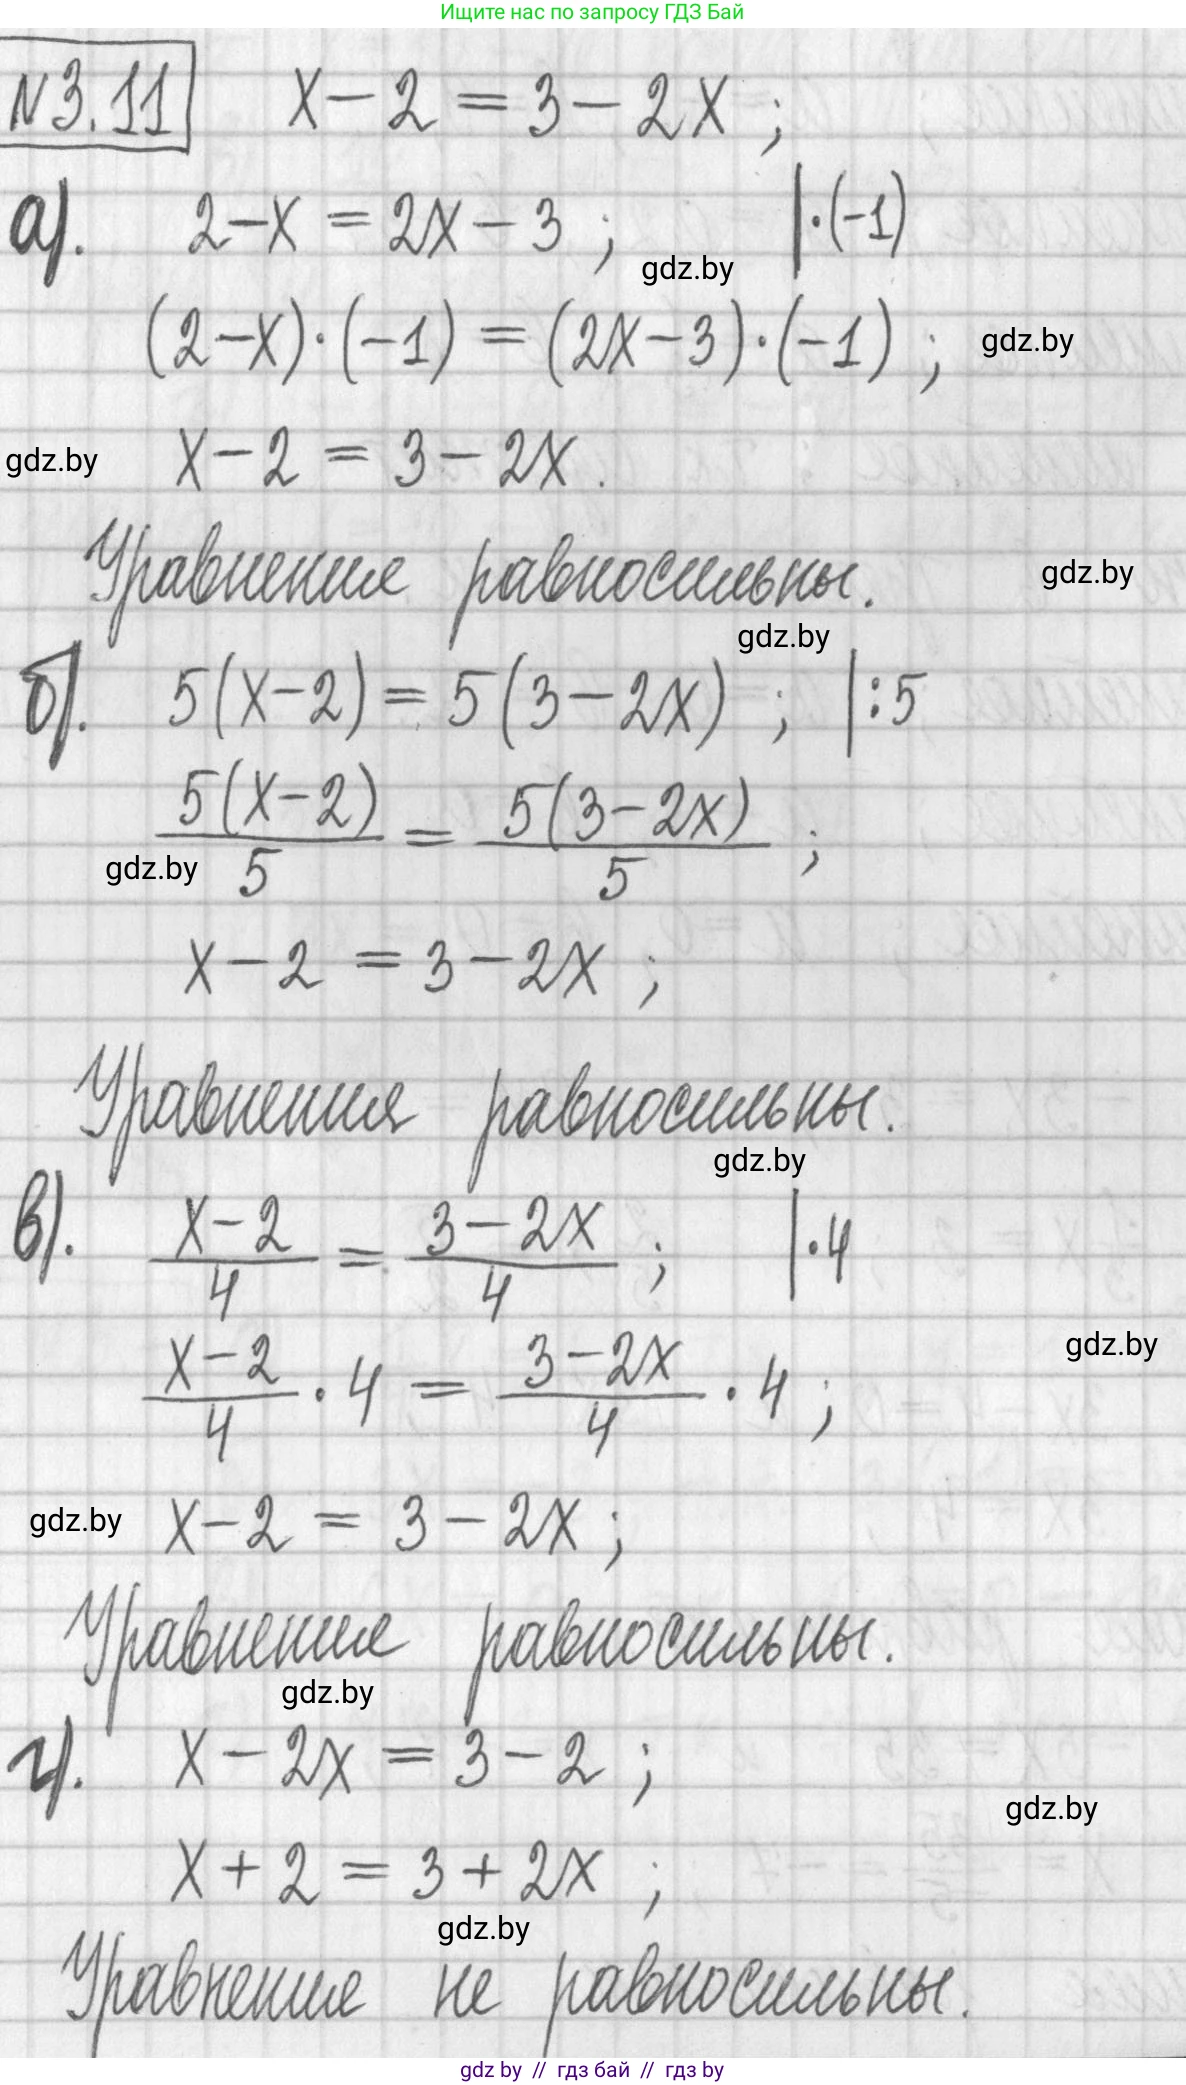 Ищите нас по запросу ГДЗ Бай
N3.11 x-2=3-2x;
а). 2-x=2x-3; |·(-1)
gdz.by
(2-x)·(-1)=(2x-3)·(-1); gdz.by
gdz.by x-2=3-2x.
Уравнения равносильны. gdz.by
gdz.by
б). 5(x-2)=5(3-2x); |:5
5(x-2)/5=5(3-2x)/5;
gdz.by
x-2=3-2x;
Уравнения равносильны.
gdz.by
в). x-2/4=3-2x/4; |·4
x-2/4·4=3-2x/4·4; gdz.by
gdz.by x-2=3-2x;
Уравнения равносильны.
gdz.by
г). x-2x=3-2;
gdz.by
x+2=3+2x;
gdz.by
Уравнения не равносильны.
gdz by // гдз бай // гдз by